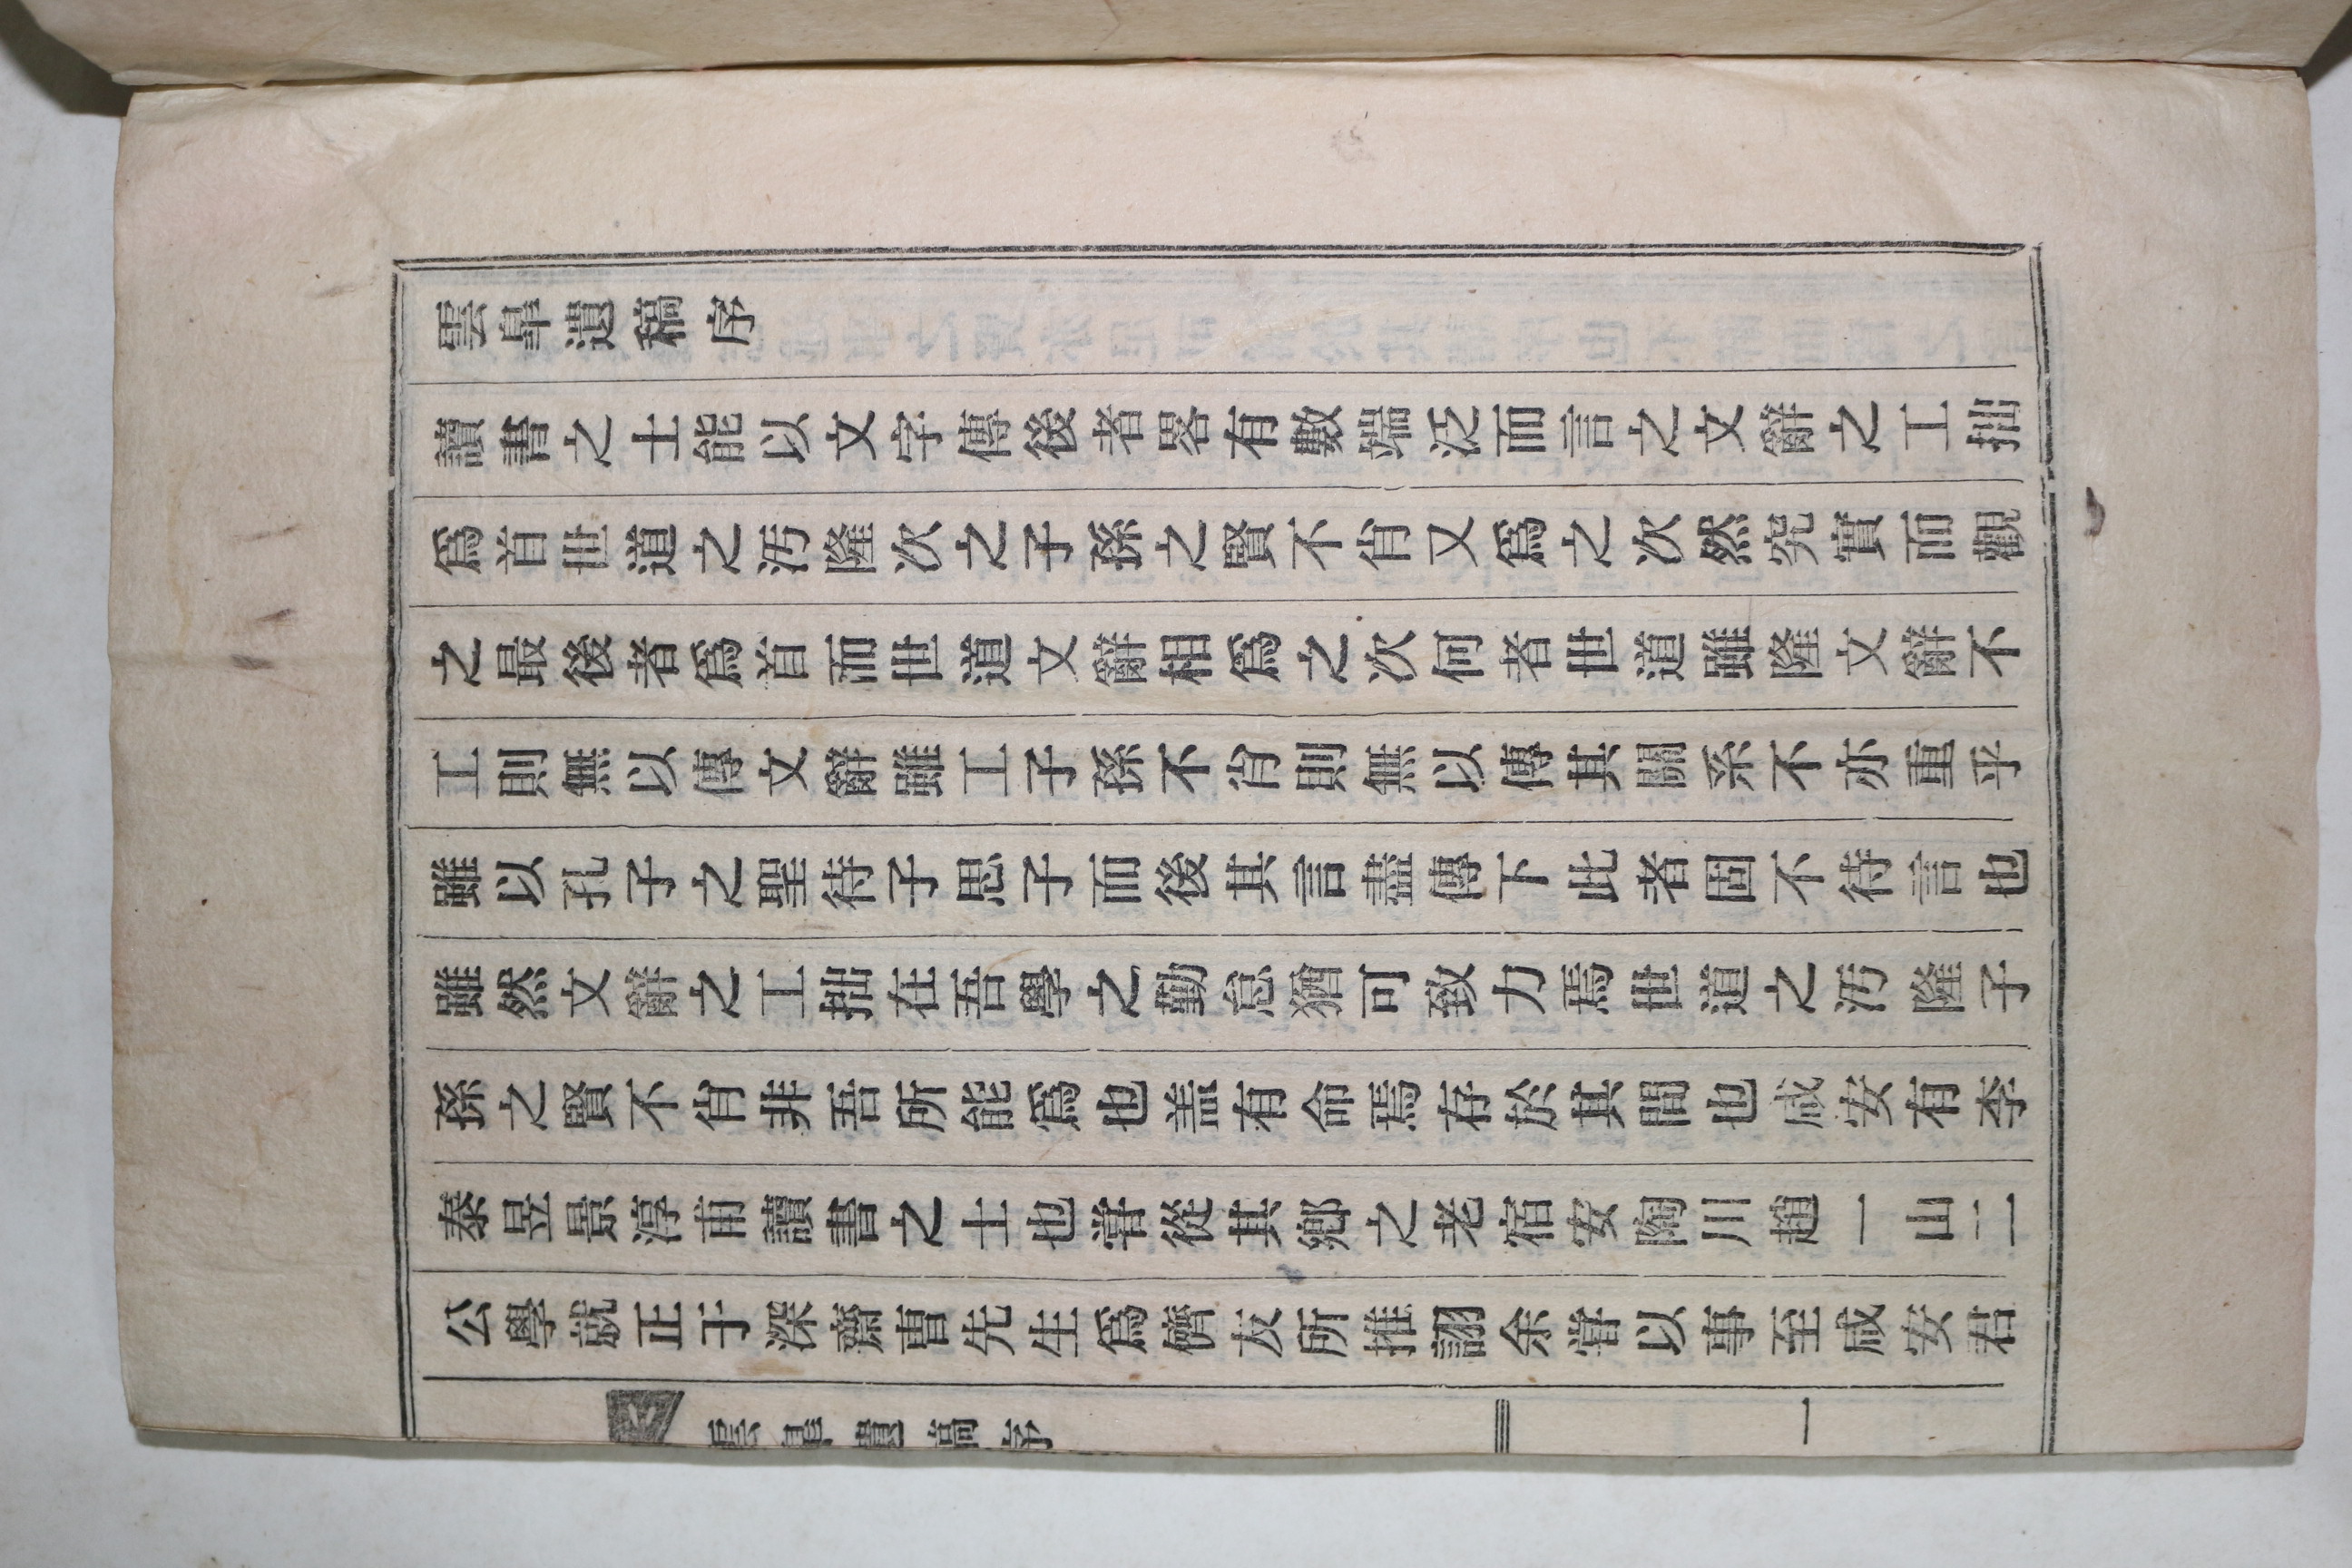 雲皐遺稿序
讀書之士能以文字傳後者畧有數端泛而言之文辭之工拙
爲首世道之汚隆次之子孫之賢不肖又爲之次然究實而觀
之最後者爲首而世道文辭相爲之次何者世道雖隆文辭不
工則無以傳文辭雖工子孫不肖則無以傳其關系不亦重乎
雖以孔子之聖待子思子而後其言盡傳下此者固不待言也
雖然文辭之工拙在吾學之勤怠猶可致力焉世道之汚隆子
孫之賢不肖非吾所能爲也盖有命焉存於其間也咸安有李
泰昱景淳甫讀書之士也甞從其鄕之老宿安陶川趙一山二
公學就正于深齋曺先生爲儕友所推詡余甞以事至咸安君
雲皐遺稿序
一